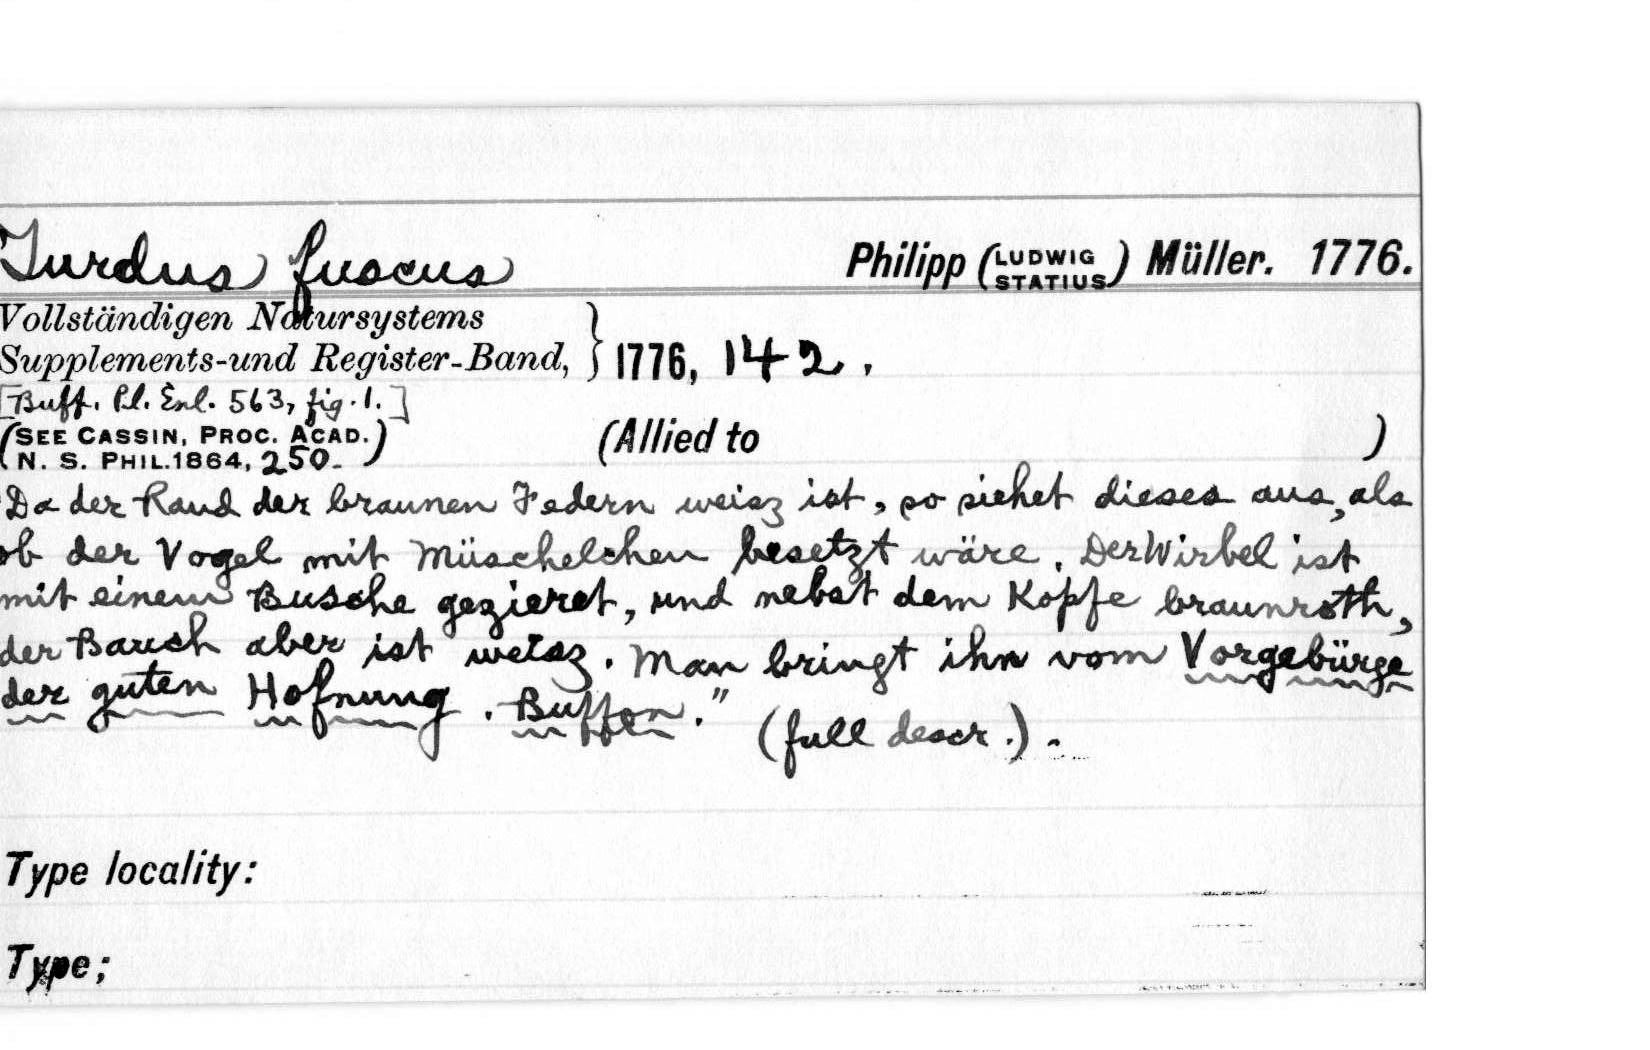 Turdus fuscus Philipp (LUDWIG STATIUS) Müller. 1776.
Vollständigen Natursystems
Supplements-und Register-Band, } 1776, 142.
[Buff. Pl. Enl. 563, fig. 1.]
(SEE CASSIN, PROC. ACAD.
N. S. PHIL. 1864, 250.) (Allied to )
"Da der Rand der braunen Federn weisz ist, so siehet dieses aus, als
ob der Vogel mit Müschelchen besetzt wäre. Der Wirbel ist
mit einem Busche gezieret, und nebst dem Kopfe braunroth,
der Bauch aber ist weisz. Man bringt ihn vom Vorgebürge
der guten Hofnung. Buffon." (full descr.).
Type locality:
Type;